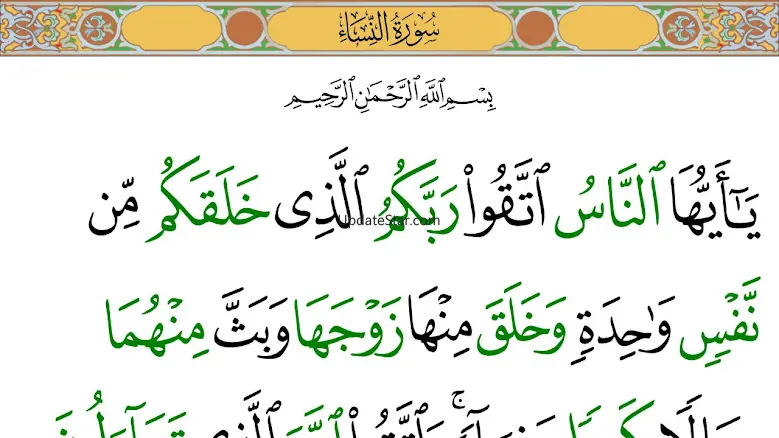 سُورَةُ النِّسَاءِ
بِسْمِ ٱللَّهِ ٱلرَّحْمَـٰنِ ٱلرَّحِيمِ
يَـٰٓأَيُّهَا ٱلنَّاسُ ٱتَّقُوا۟ رَبَّكُمُ ٱلَّذِى خَلَقَكُم مِّن
UpdateStar.com
نَّفْسٍ وَٰحِدَةٍ وَخَلَقَ مِنْهَا زَوْجَهَا وَبَثَّ مِنْهُمَا